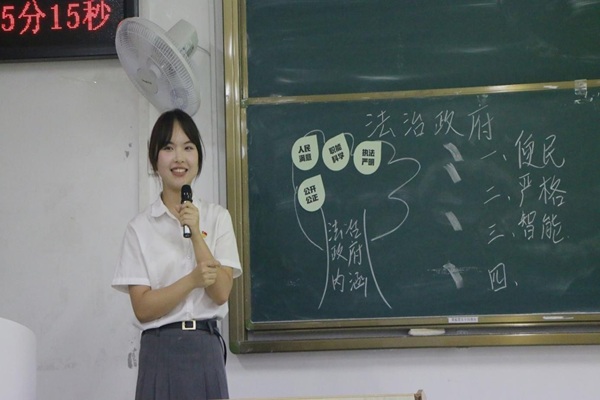 5分15秒
法治政府
人民
满意
职能
科学
执法
严明
公开
公正
法治
政府
内涵
一、便民
二、严格
三、智能
四、